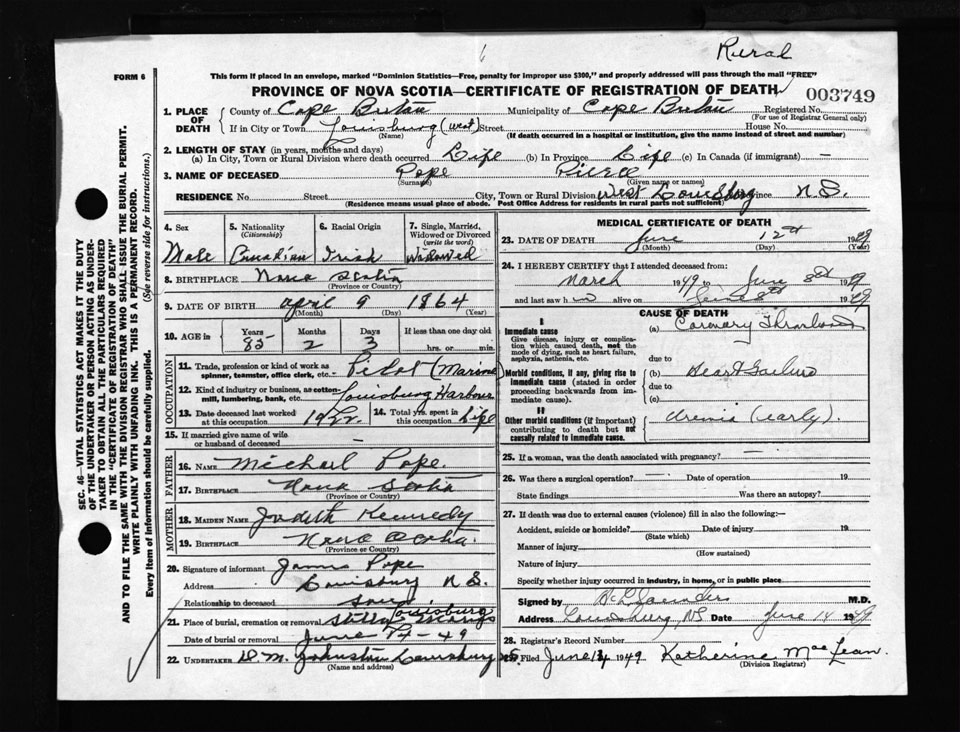 Rural
FORM 6
This form if placed in an envelope, marked "Dominion Statistics—Free, penalty for improper use $300," and properly addressed will pass through the mail "FREE"
PROVINCE OF NOVA SCOTIA—CERTIFICATE OF REGISTRATION OF DEATH
003749
SEC. 46—VITAL STATISTICS ACT MAKES IT THE DUTY
OF THE UNDERTAKER OR PERSON ACTING AS UNDER-
TAKER TO OBTAIN ALL THE PARTICULARS REQUIRED
IN THE "CERTIFICATE OF REGISTRATION OF DEATH"
AND TO FILE THE SAME WITH THE DIVISION REGISTRAR WHO SHALL ISSUE THE BURIAL PERMIT.
WRITE PLAINLY WITH UNFADING INK. THIS IS A PERMANENT RECORD.
Every item of information should be carefully supplied. (See reverse side for instructions.)
1. PLACE OF DEATH
County of Cape Breton Municipality of Cape Breton Registered No.
(For use of Registrar General only)
If in City or Town Louisburg (West) Street House No.
(Name) (If death occurred in a hospital or institution, give the name instead of street and number)
2. LENGTH OF STAY (in years, months and days)
(a) In City, Town or Rural Division where death occurred Life (b) In Province Life (c) In Canada (if immigrant) —
3. NAME OF DECEASED Pope Pierce
(Surname) (Given name or names)
RESIDENCE No. Street City, Town or Rural Division West Louisburg Province N.S.
(Residence means usual place of abode. Post Office Address for residents in rural parts not sufficient)
4. Sex
Male
5. Nationality
(Citizenship)
Canadian
6. Racial Origin
Irish
7. Single, Married, Widowed or Divorced
(write the word)
Widowed
8. BIRTHPLACE Nova Scotia
(Province or Country)
9. DATE OF BIRTH April 9 1864
(Month) (Day) (Year)
10. AGE in Years Months Days If less than one day old
85 2 3 hrs. or min.
OCCUPATION
11. Trade, profession or kind of work as
spinner, teamster, office clerk, etc. Pilot (Marine)
12. Kind of industry or business, as cotton-
mill, lumbering, bank, etc. Louisburg Harbour
13. Date deceased last worked
at this occupation
14. Total yrs. spent in
this occupation Life
15. If married give name of wife
or husband of deceased —
FATHER
16. NAME Michael Pope
17. BIRTHPLACE Nova Scotia
(Province or Country)
MOTHER
18. MAIDEN NAME Judith Kennedy
19. BIRTHPLACE Nova Scotia
(Province or Country)
20. Signature of informant James Pope
Address Louisburg N.S.
Relationship to deceased son
21. Place of burial, cremation or removal Stella Maris Louisburg
Date of burial or removal June 14-49
22. UNDERTAKER D. M. Johnston Louisburg NS
(Name and address)
MEDICAL CERTIFICATE OF DEATH
23. DATE OF DEATH June 12th 1949
(Month) (Day) (Year)
24. I HEREBY CERTIFY that I attended deceased from:
March 1949 to June 8th 1949
and last saw him alive on June 8th 1949
CAUSE OF DEATH
I
Immediate cause
Give disease, injury or complica-
tion which caused death, not the
mode of dying, such as heart failure,
asphyxia, asthenia, etc.
(a) Coronary Thrombosis
due to
Morbid conditions, if any, giving rise to
immediate cause (stated in order
proceeding backwards from im-
mediate cause).
(b) Heart Failure
due to
(c)
II
Other morbid conditions (if important)
contributing to death but not
causally related to immediate cause.
Uremia (early).
25. If a woman, was the death associated with pregnancy? —
26. Was there a surgical operation? — Date of operation 19
State findings Was there an autopsy?
27. If death was due to external causes (violence) fill in also the following:—
Accident, suicide or homicide? Date of injury 19
(State which)
Manner of injury
(How sustained)
Nature of injury
Specify whether injury occurred in industry, in home, or in public place
Signed by Saunders M.D.
Address Louisburg, NS Date June 14 1949
28. Registrar's Record Number
Filed June 14 1949 Katherine MacLean.
(Division Registrar)